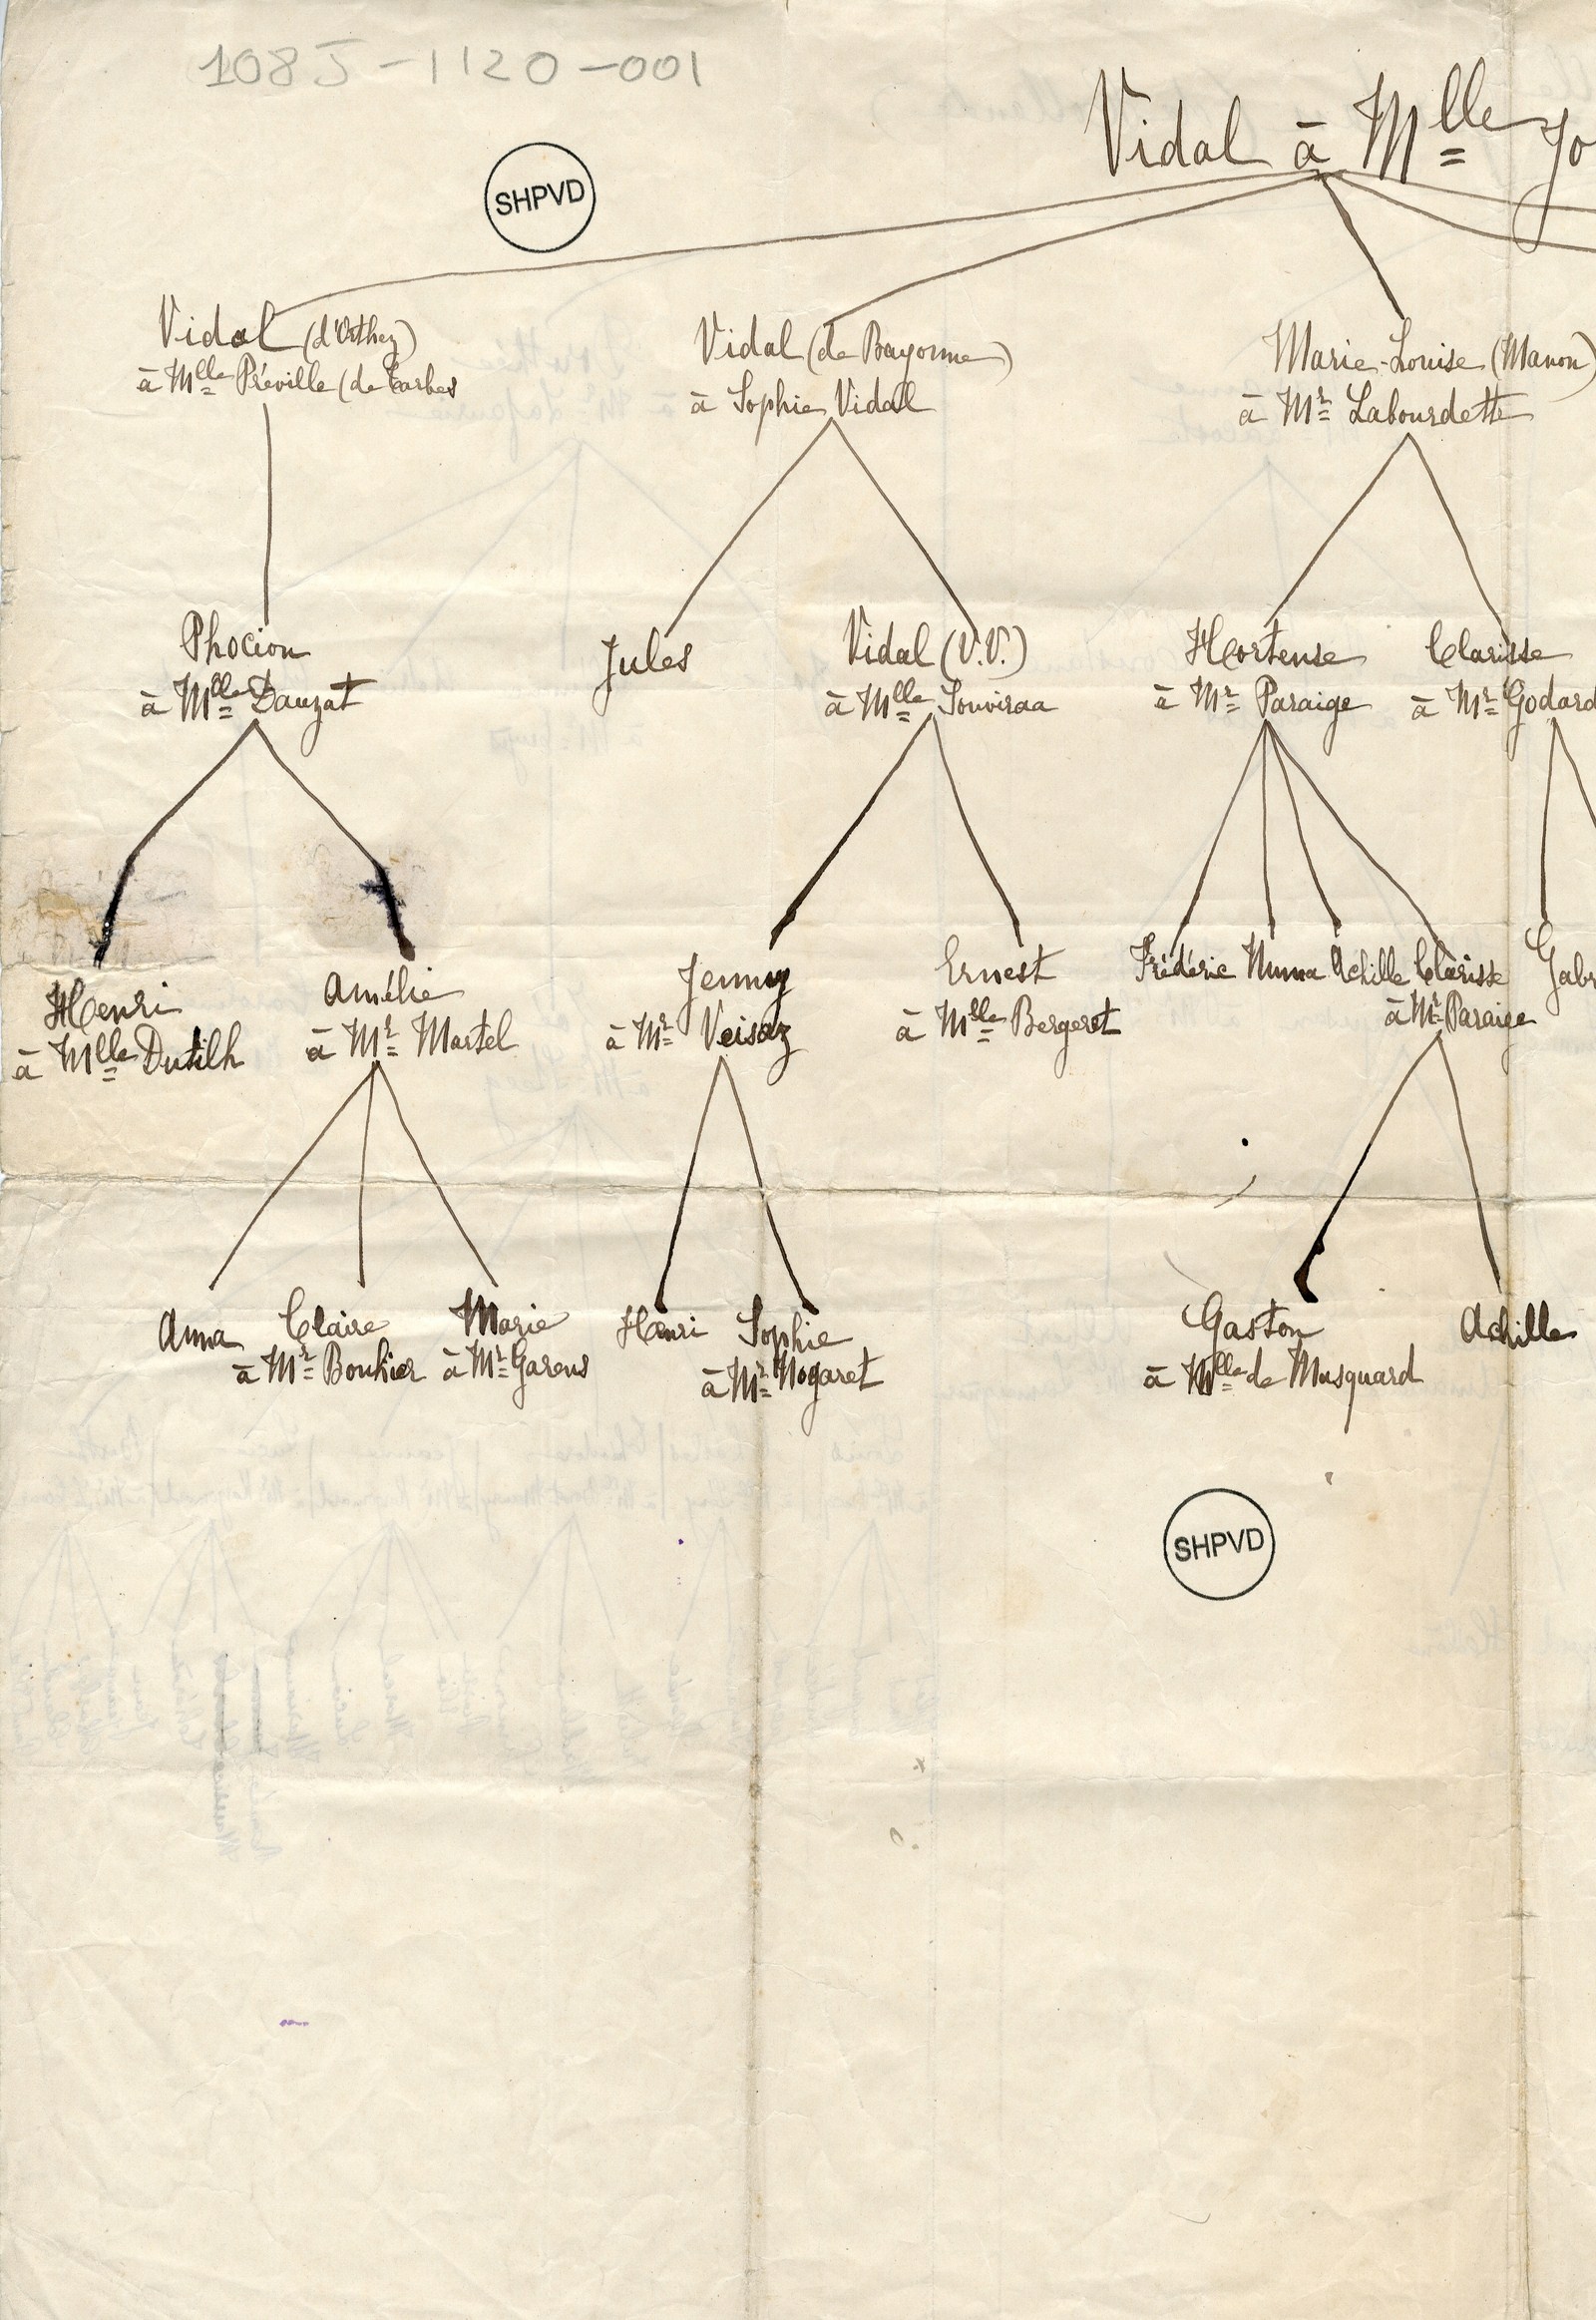 108J-1120-001
Vidal à Mlle Jo
SHPVD
Vidal (d'Orthez)
à Mlle Préville (de Tarbes
Vidal (de Bayonne)
à Sophie Vidal
Marie-Louise (Manon)
à Mr Labourdette
Phocion
à Mlle Dauzat
Jules
Vidal (V.V.)
à Mlle Souviraa
Hortense
à Mr Paraige
Clarisse
à Mr Godard
Henri
à Mlle Dutilh
Amélie
à Mr Martel
Jenny
à Mr Veisaz
Ernest
à Mlle Bergeret
Frédéric Numa Achille Clarisse
à Mr Paraige
Gabr
Anna
Claire
à Mr Bouhier
Marie
à Mr Garens
Henri
Sophie
à Mr Nogaret
Gaston
à Mlle de Musquard
Achille
SHPVD